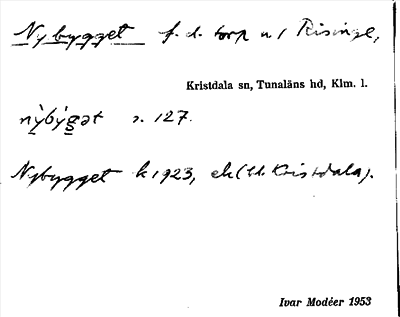 Nybygget f.d. torp u/ Risinge,
Kristdala sn, Tunaläns hd, Klm. l.
nỳbýg̲ət s. 127.
Nybygget k 1923, ek (bl. Kristdala).
Ivar Modéer 1953